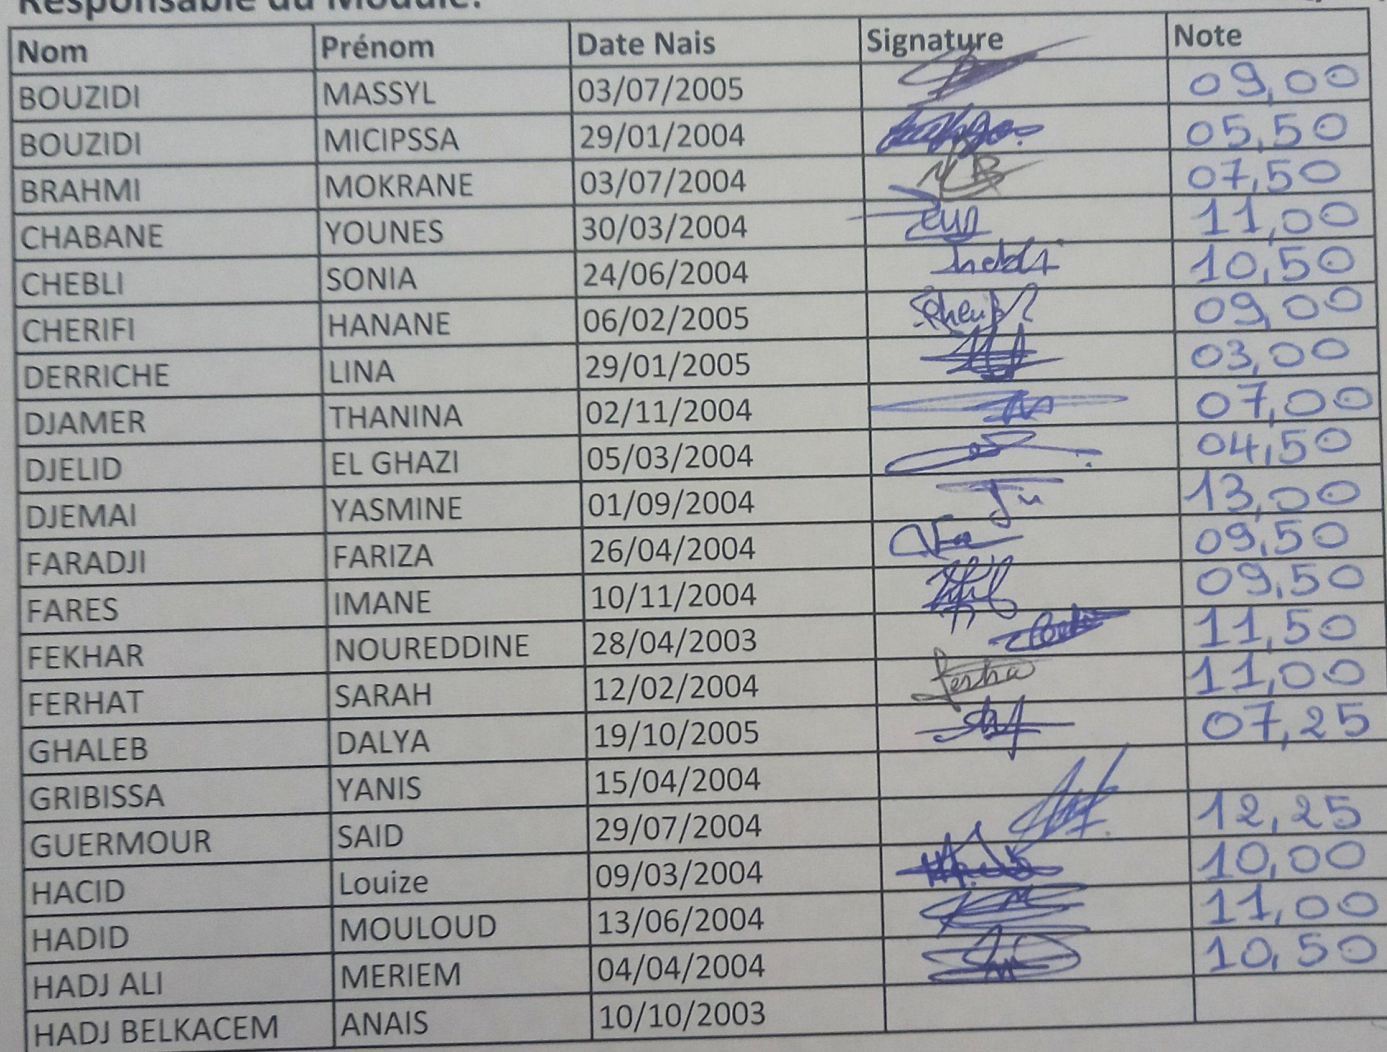 Responsable du Module:
Nom Prénom Date Nais Signature Note
BOUZIDI MASSYL 03/07/2005 09,00
BOUZIDI MICIPSSA 29/01/2004 05,50
BRAHMI MOKRANE 03/07/2004 07,50
CHABANE YOUNES 30/03/2004 11,00
CHEBLI SONIA 24/06/2004 10,50
CHERIFI HANANE 06/02/2005 09,00
DERRICHE LINA 29/01/2005 03,00
DJAMER THANINA 02/11/2004 07,00
DJELID EL GHAZI 05/03/2004 04,50
DJEMAI YASMINE 01/09/2004 13,00
FARADJI FARIZA 26/04/2004 09,50
FARES IMANE 10/11/2004 09,50
FEKHAR NOUREDDINE 28/04/2003 11,50
FERHAT SARAH 12/02/2004 11,00
GHALEB DALYA 19/10/2005 07,25
GRIBISSA YANIS 15/04/2004
GUERMOUR SAID 29/07/2004 12,25
HACID Louize 09/03/2004 10,00
HADID MOULOUD 13/06/2004 11,00
HADJ ALI MERIEM 04/04/2004 10,50
HADJ BELKACEM ANAIS 10/10/2003